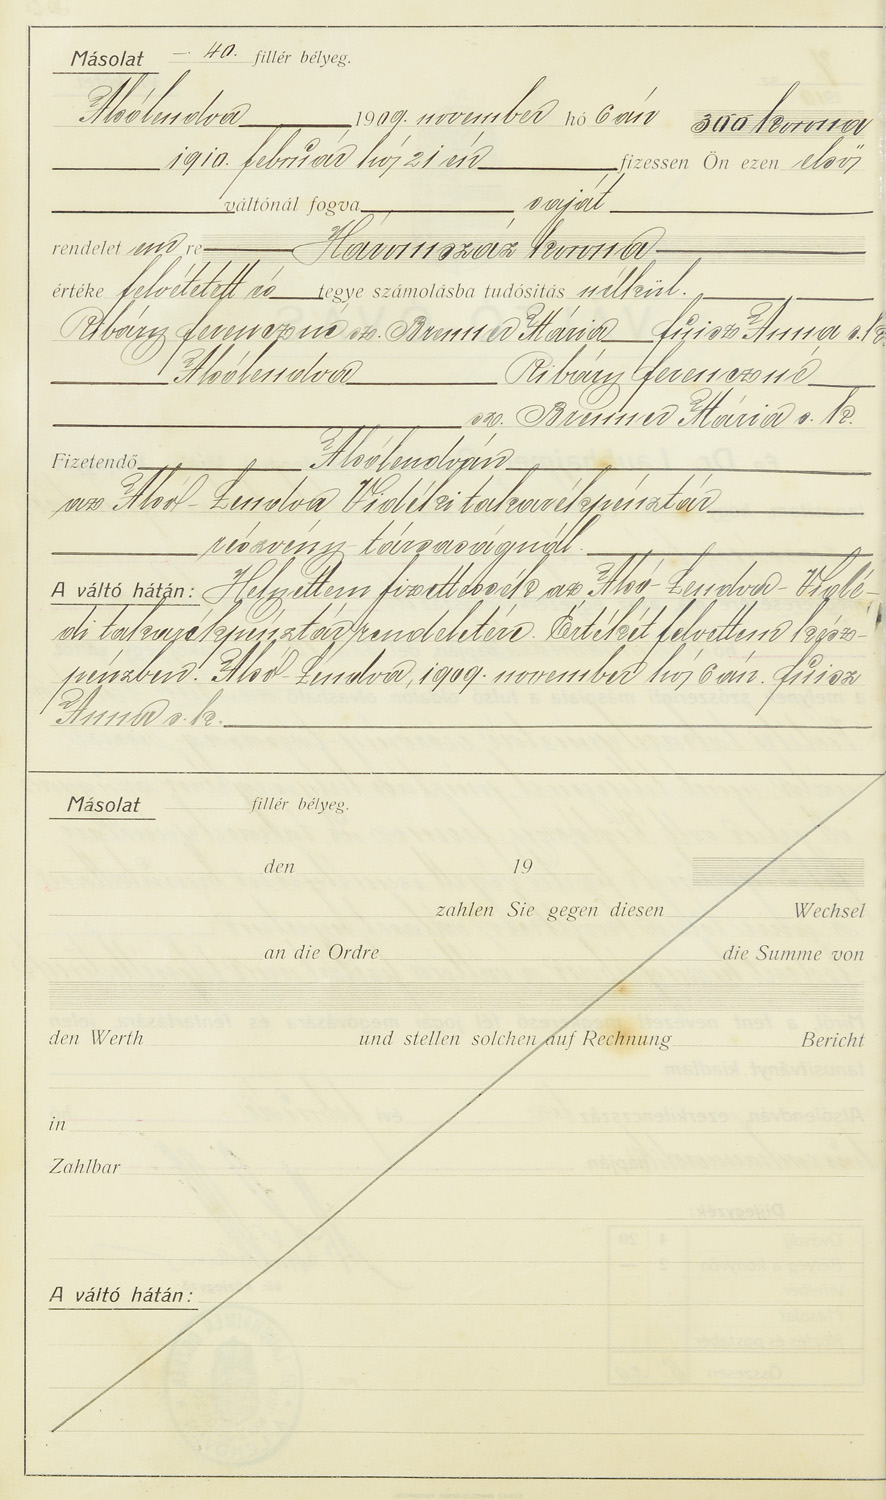 Másolat – 40. fillér bélyeg.
Alsólendva 1909. november hó 6 án 300 korona
1910. február hó 21 én fizessen Ön ezen első
váltónál fogva saját
rendelet em re Háromszáz korona
értéke felvétetett és tegye számolásba tudósitás nélkül.
Ribáry Ferenczné sz. Brenner Mária Fuisz Anna s.k.
Alsólendva Ribáry Ferenczné
sz. Brenner Mária s. k.
Fizetendő Alsólendván
az Alsó-Lendva Vidéki takarékpénztár
részvény társaságnál.
A váltó hátán: Helyettem fizettessék az Alsó-Lendva-Vidé-
ki takarékpénztár rendeletére. Értékét felvettem kész-
pénzben. Alsó-Lendva, 1909. november hó 6 án. Fuisz
Anna s. k.
Másolat fillér bélyeg.
den 19
zahlen Sie gegen diesen Wechsel
an die Ordre die Summe von
den Werth und stellen solchen auf Rechnung Bericht
in
Zahlbar
A váltó hátán: